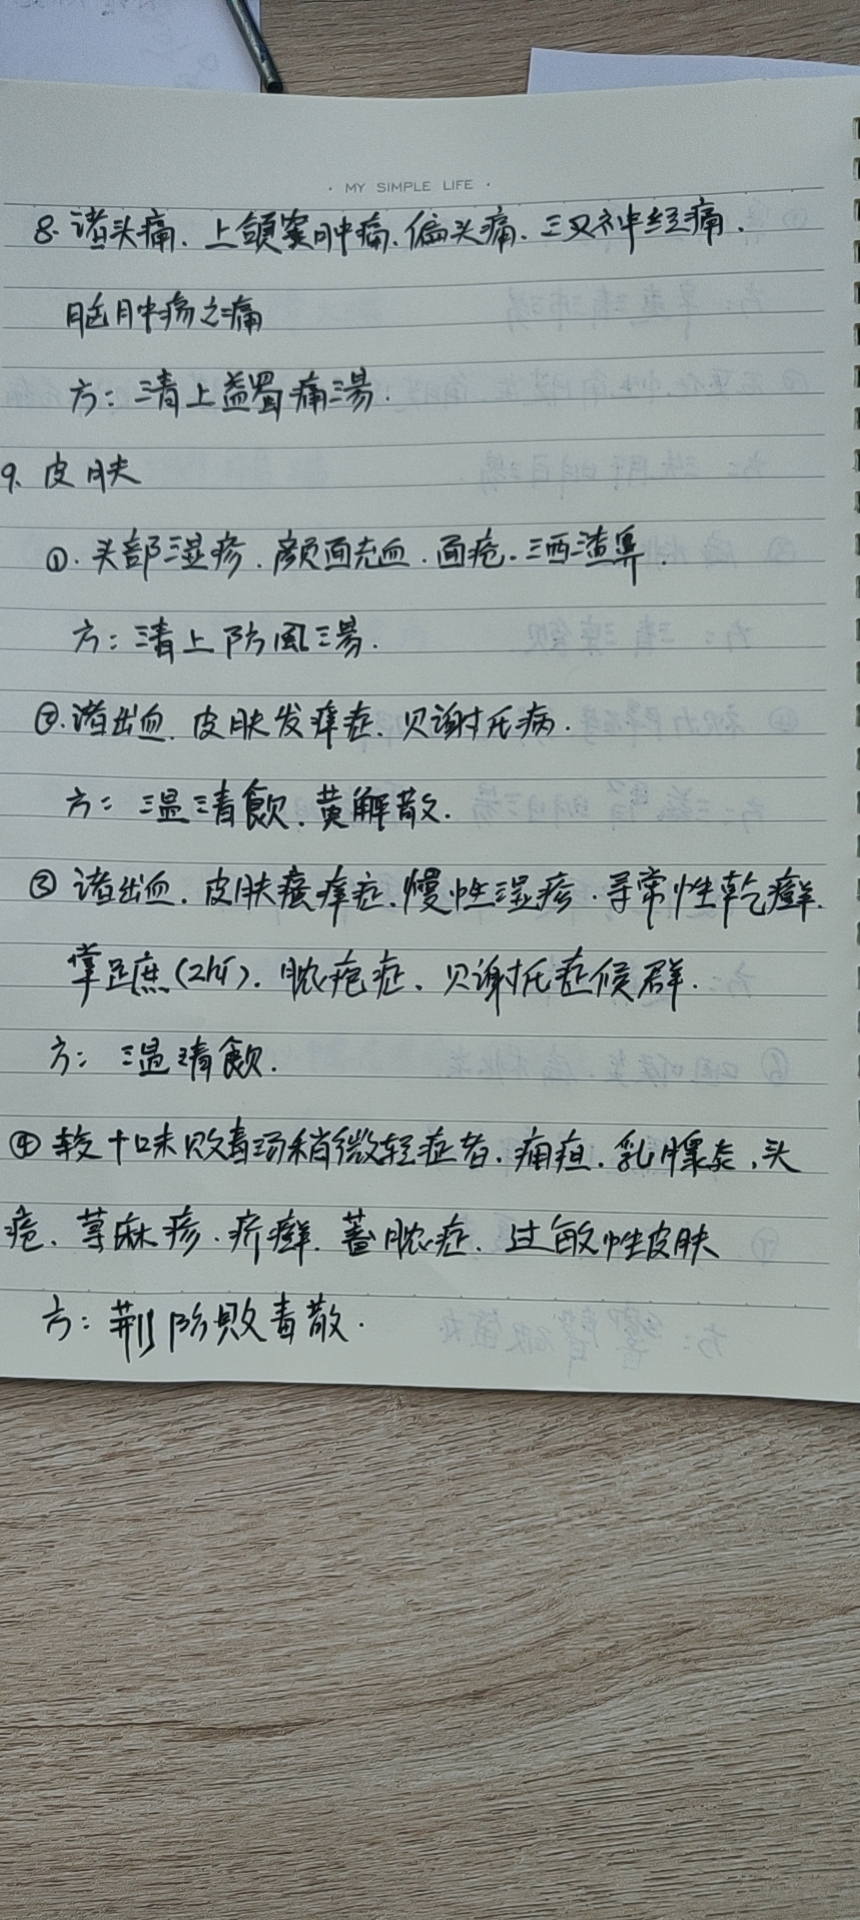 · MY SIMPLE LIFE ·
8. 诸头痛、上颌窦肿痛、偏头痛、三叉神经痛、
脑肿疡之痛
方：清上蠲痛湯.
9. 皮肤
①. 头部湿疹、颜面充血、面疱、酒渣鼻.
方：清上防風湯.
②. 诸出血、皮肤发痒症、贝谢托病.
方：温清飲、黄解散.
③ 诸出血、皮肤瘙痒症、慢性湿疹、寻常性乾癣、
掌足庶(zhí)、脓疱症、贝谢托症候群.
方：温清飲.
④ 较十味败毒汤稍微轻症者、痈疽、乳腺炎、头
疮、荨麻疹、疥癣、蓄脓症、过敏性皮肤
方：荆防败毒散.